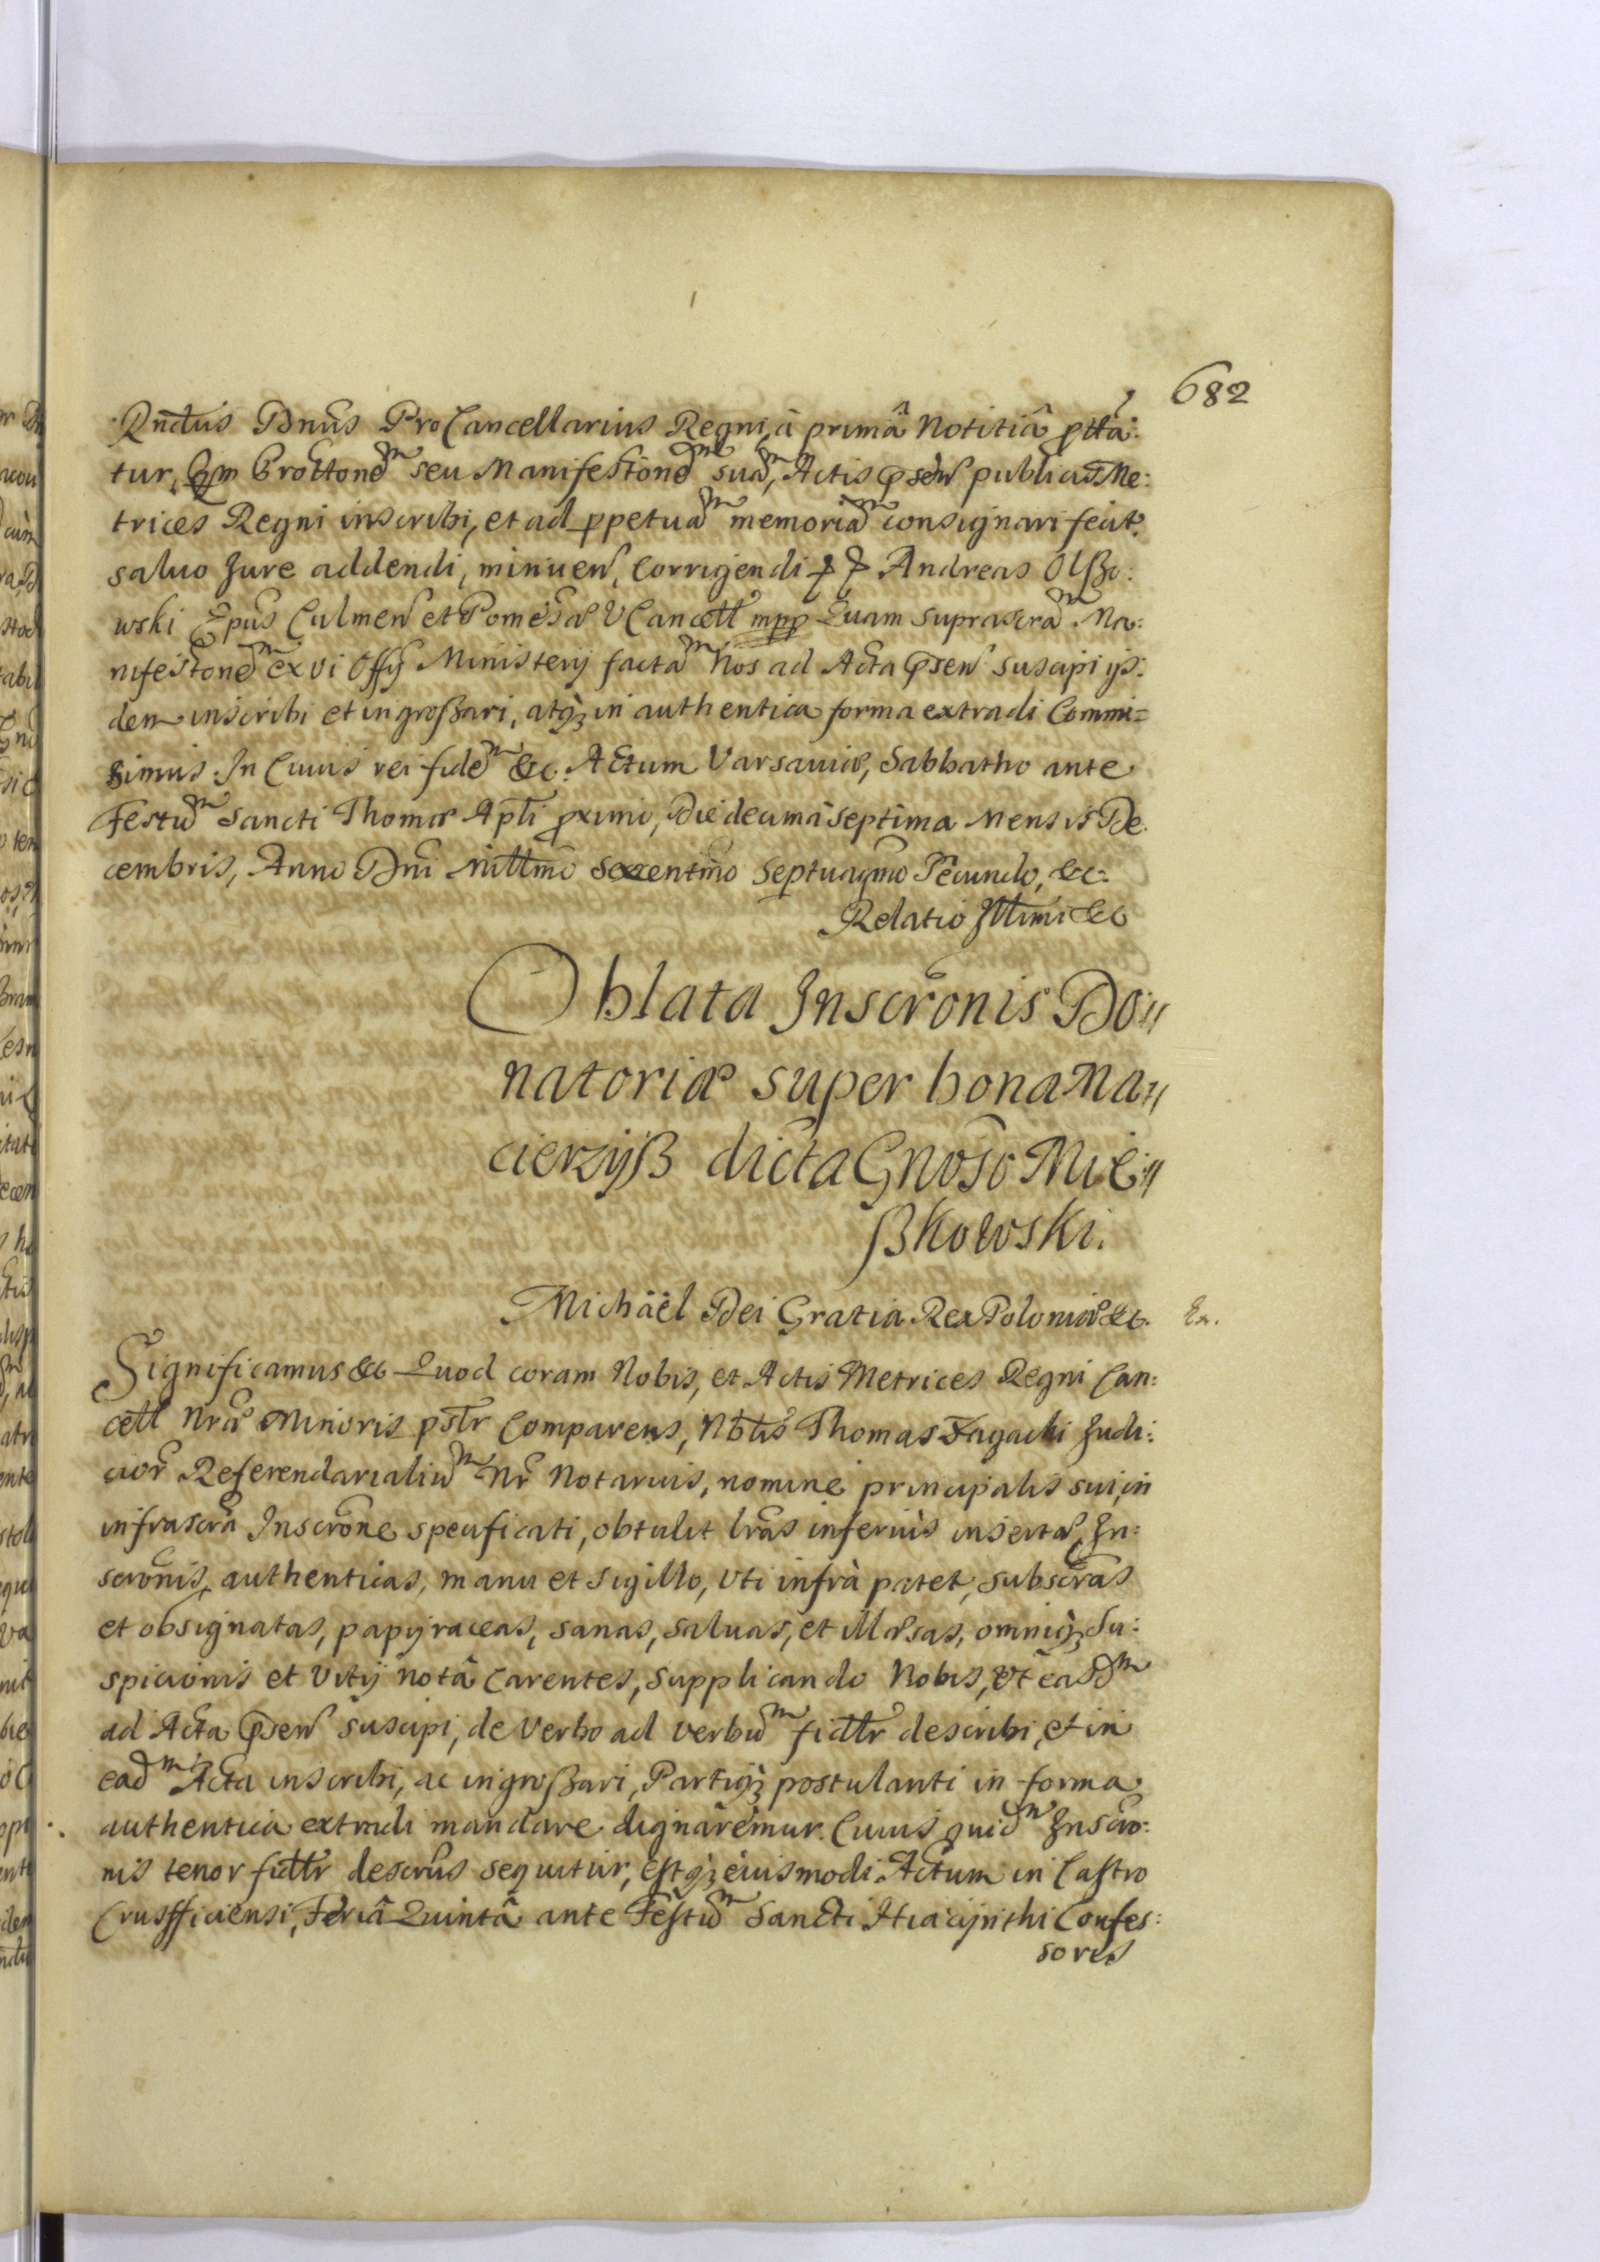 682
Rndus Dnus ProCancellarius Regni à primâ Notitiâ ptta:
tur, Qm Prottone͞m seu Manifestone͞m sua͞m, Actis psen publicas Me:
trices Regni inscribi, et ad ppetua͞m memoria͞m consignari fecit.
saluo Jure addendi, minuen, Corrigendi Andreas Olßo:
wski Epus Culmen et Pomesaæ VCancell mpp Quam suprascra͞m Ma:
nifestone͞m ex vi Offij Ministerij facta͞m Nos ad Acta psen suscipi ijs:
dem inscribi et ingroßari, atq3 in authentica forma extradi Commi=
simus. In Cuius rei fide͞m &c. Actum Varsauiæ, Sabbatho ante
Festu͞m Sancti Thomæ Apli pximo, Die decimâ septima Mensis De
cembris, Anno Dni Millmo Sexcentmo Septuagmo Secundo, &c.
Relatio Illmi &c
Oblata Inscronis Do:
natoriæ super bona Ma:
cierzyß dicta Gnoso Mie:
ßkowski.
Michäel Dei Gratia Rex Poloniæ &c. Ex.
Significamus &c Quod coram Nobis, et Actis Metrices Regni Can:
cell Nræ Minoris pstr Comparens, Nblis Thomas Zagacki Judi:
cior Referendarialiu͞m Nr Notarius, nomine principalis sui, in
infrascra Inscrone specificati, obtulit lras inferiùs insertas, In:
scronis, authenticas, manu et sigillo, vti infrà patet, subscras
et obsignatas, papyraceas, sanas, saluas, et illæsas, omniq3 Su:
spicionis et vitij notâ Carentes, Supplicando Nobis, vt easd͞m
ad Acta psen suscipi, de verbo ad verbu͞m fidlr describi, et in
ead͞m Acta inscribi, ac ingroßari, Partiq3 postulanti in forma
authentica extradi mandare dignaremur. Cuius quid͞m Inscro:
nis tenor fidlr descrus sequitur, estq3 eiusmodi. Actum in Castro
Crusfficiensi, Feriâ Quintâ ante Festu͞m Sancti Hiacijnthi Confes:
soris